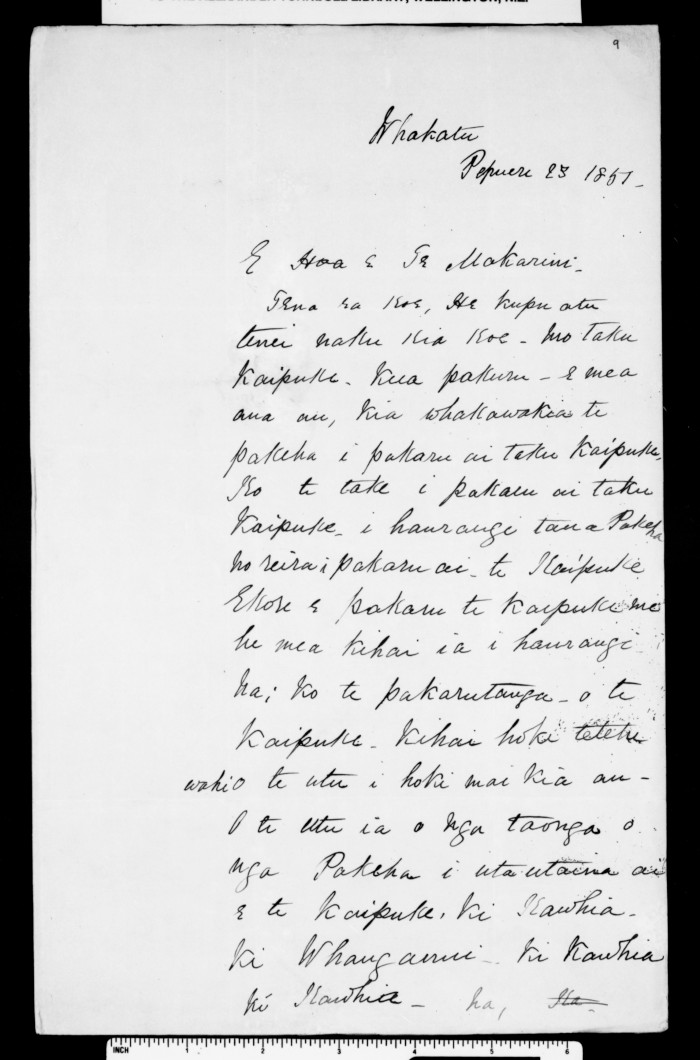 9
Whakatu
Pepuere 23 1851_
E Hoa e Te Makarini_
Tena ra koe, He kupu atu
tenei naku kia koe_ mo taku
Kaipuke_ Kua pakuru_ e mea
ana au, kia whakawakia te
pakeha i pakaru ai taku Kaipuke,
Ko te take i pakaru ai taku
Kaipuke_ i haurangi tana Pakeha
no reira i pakaru ai_ te Kaipuke
Ekore e pakaru te kaipuke me
he mea kihai ia i haurangi
Na; ko te pakarutanga_ o te
Kaipuke_ Kihai hoki tetehe
wahi o te utu i hoki mai kia au_
O te utu ia o nga taonga o
nga Pakeha i uta utaina ai
e te Kaipuke, ki Kawhia_
Ki Whangaruui_ Ki Kawhia
ki Kawhia_ na, Ka_